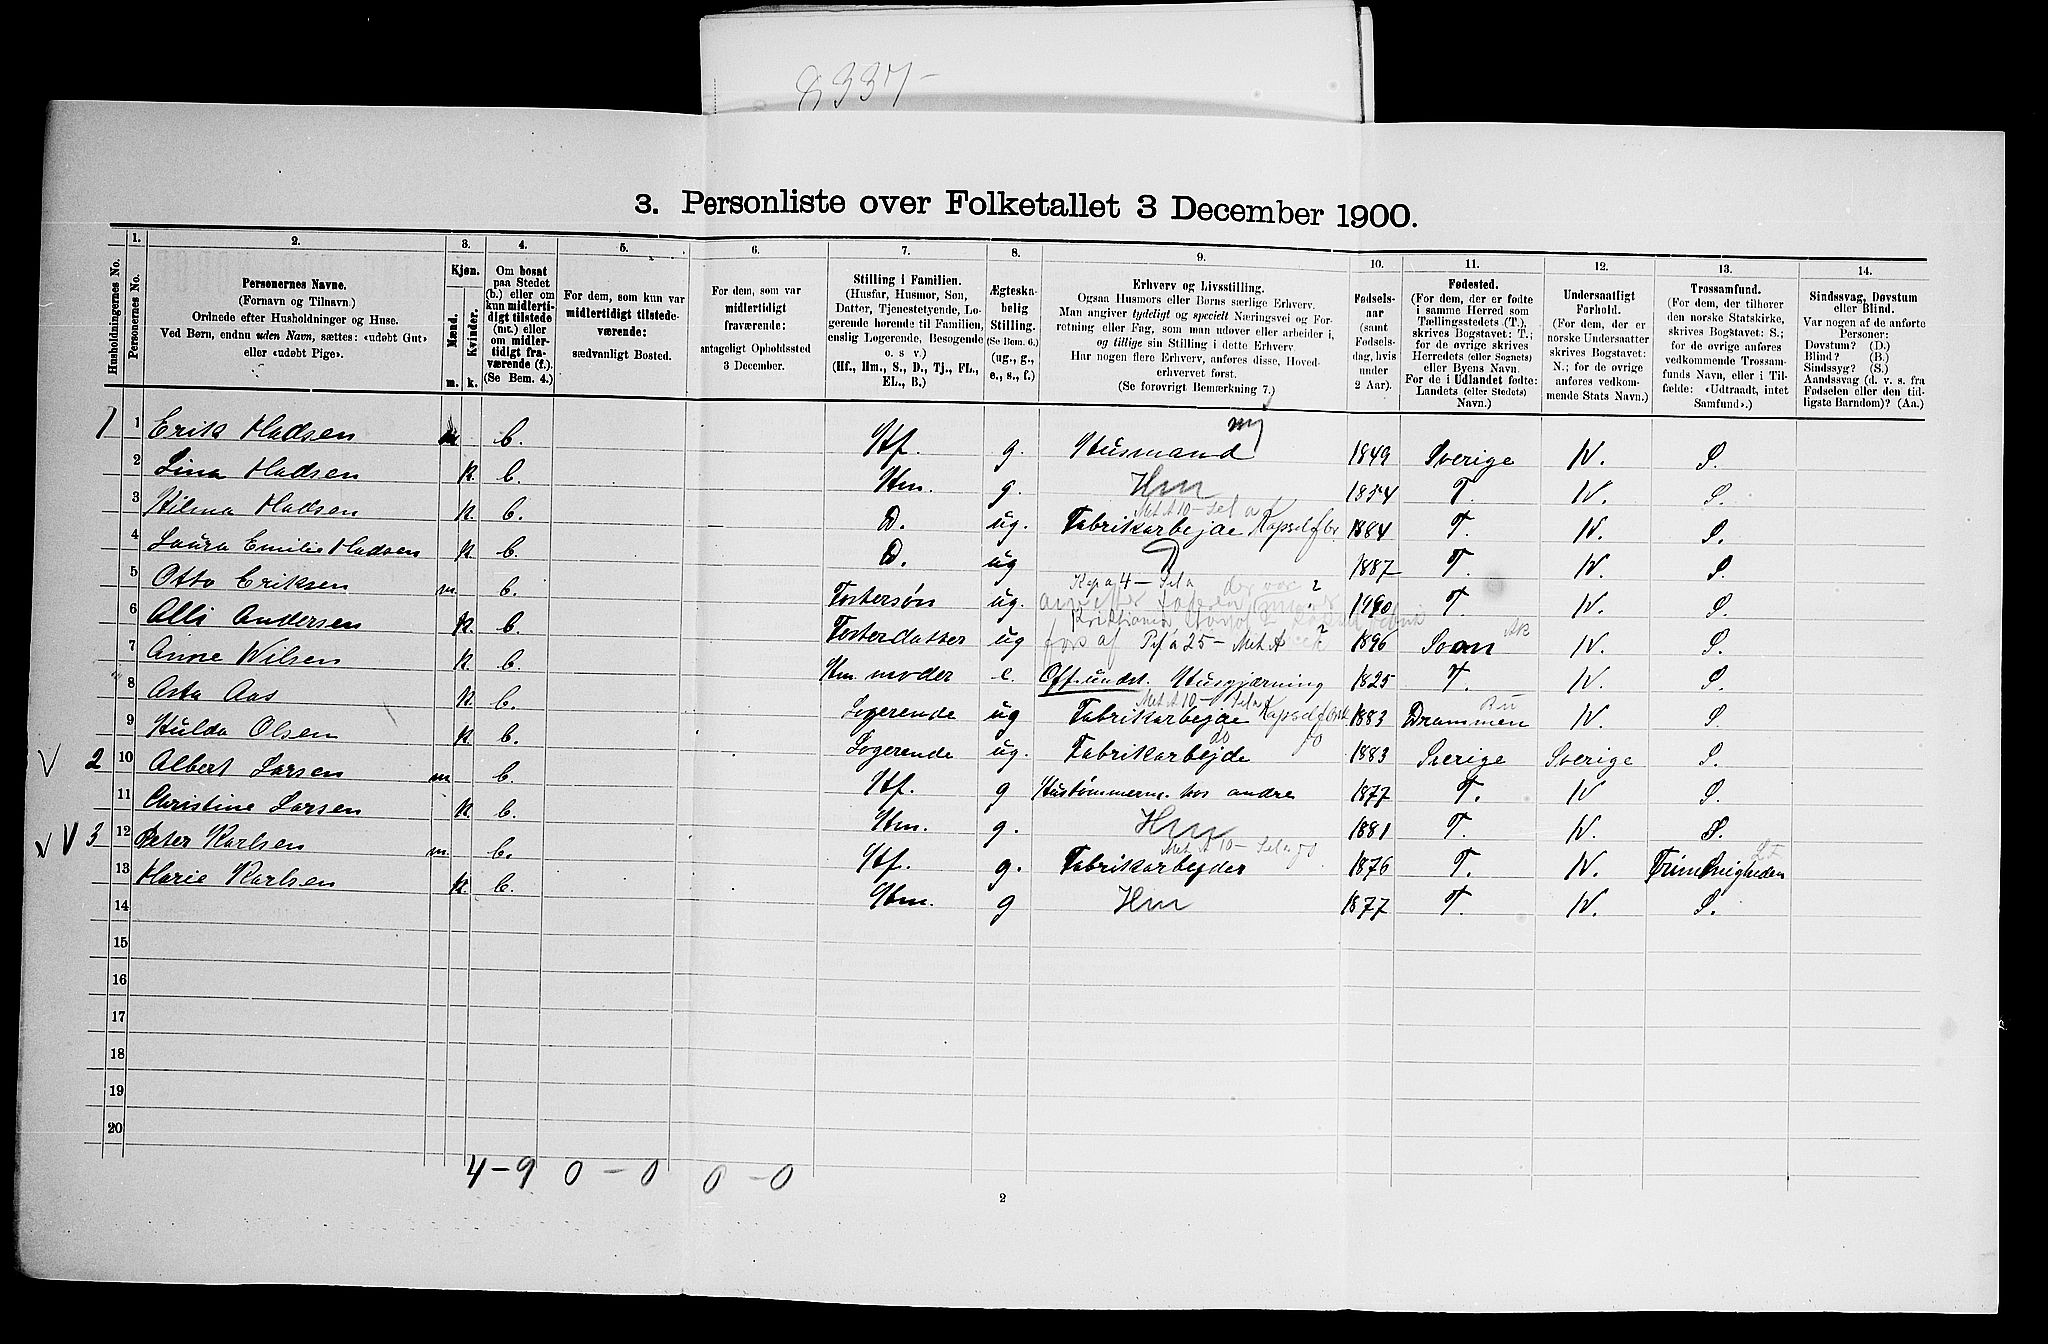 8337-
3. Personliste over Folketallet 3 December 1900.
Husholdningernes No.
1.
Personernes No.
2.
Personernes Navne.
(Fornavn og Tilnavn.)
Ordnede efter Husholdninger og Huse.
Ved Børn, endnu uden Navn, sættes: «udøbt Gut»
eller «udøbt Pige».
3.
Kjøn.
Mænd.
Kvinder.
m.
k.
4.
Om bosat
paa Stedet
(b.) eller om
kun midlerti-
digt tilstede
(mt.) eller
om midler-
tidigt fra-
værende (f.).
(Se Bem. 4.)
5.
For dem, som kun var
midlertidigt tilstede-
værende:
sædvanligt Bosted.
6.
For dem, som var
midlertidigt
fraværende:
antageligt Opholdssted
3 December.
7.
Stilling i Familien.
(Husfar, Husmor, Søn,
Datter, Tjenestetyende, Lo-
gerende hørende til Familien,
enslig Logerende, Besøgende
o. s. v.)
(Hf., Hm., S., D., Tj., FL.,
EL., B.)
8.
Ægteska-
belig
Stilling.
(Se Bem. 6.)
(ug., g.,
e., s., f.)
9.
Erhverv og Livsstilling.
Ogsaa Husmors eller Børns særlige Erhverv.
Man angiver tydeligt og specielt Næringsvei og For-
retning eller Fag, som man udøver eller arbeider i,
og tillige sin Stilling i dette Erhverv.
Har nogen flere Erhverv, anføres disse, Hoved-
erhvervet først.
(Se forøvrigt Bemærkning 7.)
10.
Fødsels-
aar
(samt
Fødsels-
dag, hvis
under
2 Aar).
11.
Fødested.
(For dem, der er fødte
i samme Herred som
Tællingsstedets (T.),
skrives Bogstavet: T.;
for de øvrige skrives
Herredets (eller Sognets)
eller Byens Navn.
For de i Udlandet fødte:
Landets (eller Stedets)
Navn.)
12.
Undersaatligt
Forhold.
(For dem, der er
norske Undersaatter
skrives Bogstavet:
N.; for de øvrige
anføres vedkom-
mende Stats Navn.)
13.
Trossamfund.
(For dem, der tilhører
den norske Statskirke,
skrives Bogstavet: S.;
for de øvrige anføres
vedkommende Trossam-
funds Navn, eller i Til-
fælde: «Udtraadt, intet
Samfund».)
14.
Sindssvag, Døvstum
eller Blind.
Var nogen af de anførte
Personer:
Døvstum? (D.)
Blind? (B.)
Sindssyg? (S.)
Aandssvag (d. v. s. fra
Fødselen eller den tid-
ligste Barndom)? (Aa.)
1 1 Erik Madsen m b. Hf. g. Husmand 1849 Sverige N. S.
2 Lina Madsen k. b. Hm. g. Hm 1854 T. N. S.
Met A 10 - Sel a
3 Hilma Madsen k. b. D. ug. Fabrikarbejde Kapselfbr 1884 T. N. S.
4 Laura Emilie Madsen k b. D. ug 1887 T. N. S.
5 Otto Eriksen m. b. Fostersøn ug. 1890 T. N. S.
6 Alli Andersen k. b. Fosterdatter ug 1896 N. S.
7 Anne Nilsen k. b. Hm. moder e. Off. undst. Husgjærning 1825 T. N. S.
Met A 10 - Sel a
8 Asta Aas k b. Logerende ug Fabrikarbejde Kapselfbrk 1883 Drammen Bu N. S.
9 Hulda Olsen k b. Logerende ug. Fabrikarbejde do do 1883 Sverige Sverige S.
V 2 10 Albert Larsen m b. Hf. g Hustømmerm. hos andre 1877 T. N S.
11 Christine Larsen k b. Hm. g. Hm 1881 T. N. S.
Met A 10 - Sel a do
v V 3 12 Peter Karlsen m. b. Hf. g. Fabrikarbejder 1876 T. N. Frimenigheden
13 Marie Karlsen k. b. Hm. g Hm 1877 T. N. S.
14
15
16
17
18
19
20
4-9 0-0 0-0
2